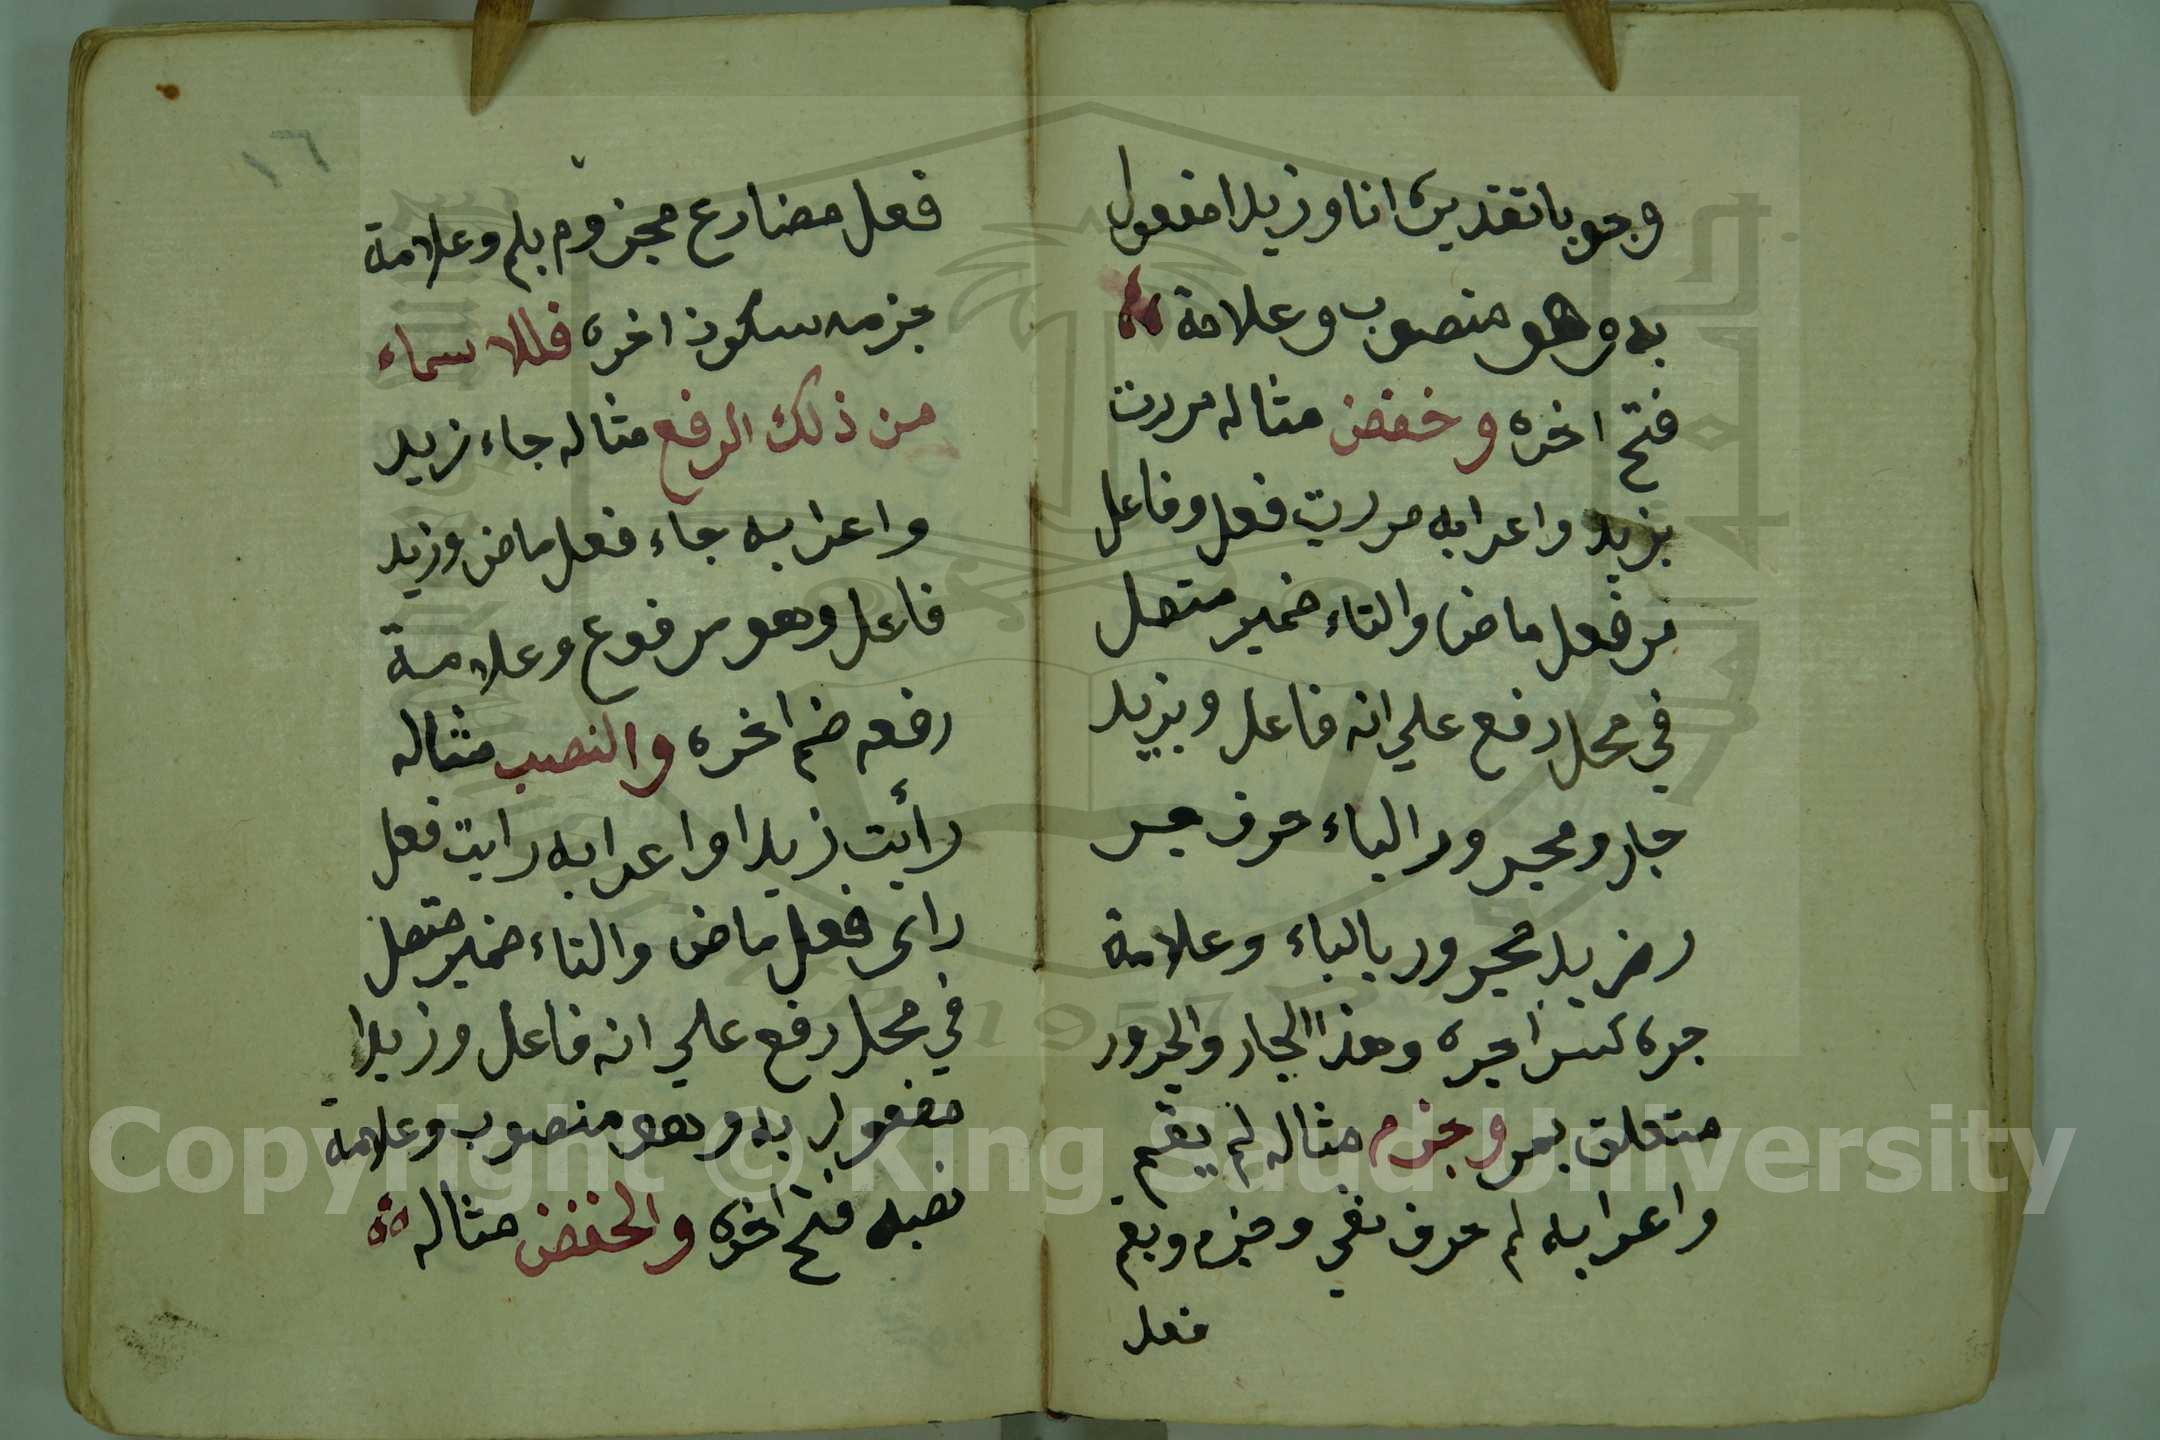 وجوبا تقديره انا وزيدا مفعول
به وهو منصوب وعلامة
فتح اخره وخفض مثاله مررت
بزيد واعرابه مررت فعل وفاعل
مر فعل ماض والتاء ضمير متصل
في محل رفع علي انه فاعل وبزيد
جار ومجرور الباء حرف جر
وزيد مجرور بالباء وعلامة
جره كسر اخره وهذا الجار والمجرور
متعلق بمر وجزم مثاله لم يقم
واعرابه لم حرف نفي وجزم ويقم
فعل
١٦
فعل مضارع مجزوم بلم وعلامة
جزمه سكون اخره فللاسماء
من ذلك الرفع مثاله جاء زيد
واعرابه جاء فعل ماض وزيد
فاعل وهو مرفوع وعلامة
رفعه ضم اخره والنصب مثاله
رأيت زيدا واعرابه رايت فعل
راى فعل ماض والتاء ضمير متصل
في محل رفع علي انه فاعل وزيدا
مفعول به وهو منصوب وعلامة
نصبه فتح اخره والخفض مثاله
Copyright © King Saud University
1957